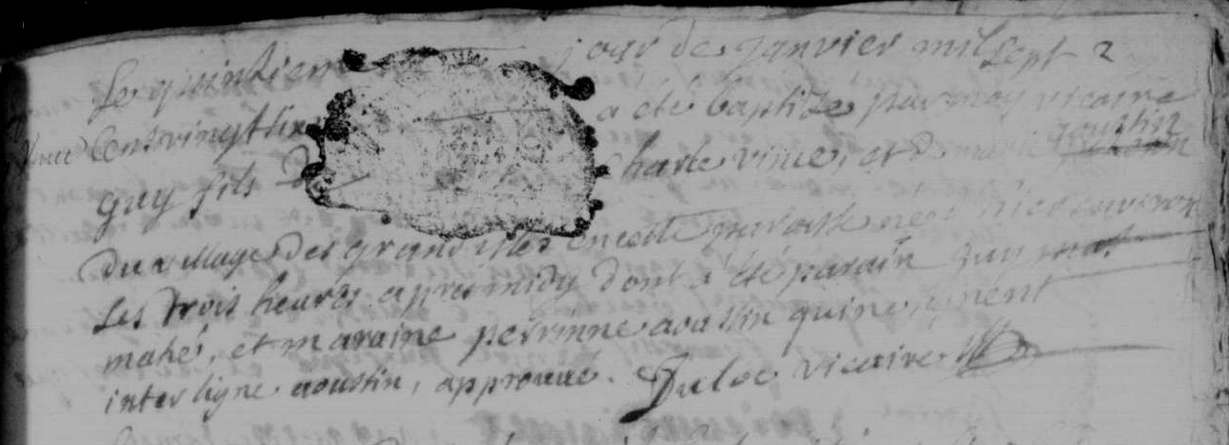 Le quinzieme jour de janvier mil sept
Cent vingt six a été baptizé par moy vicaire
aoustin
guy fils de charle vince, et de marie
du village des grand isles en cette paroisse né d'hier environ
les trois heures apres midy dont a été parain guy
mahé, et maraine perrinne aoustin qui ne signent
interligne aoustin, approuvé. Duloc vicaire